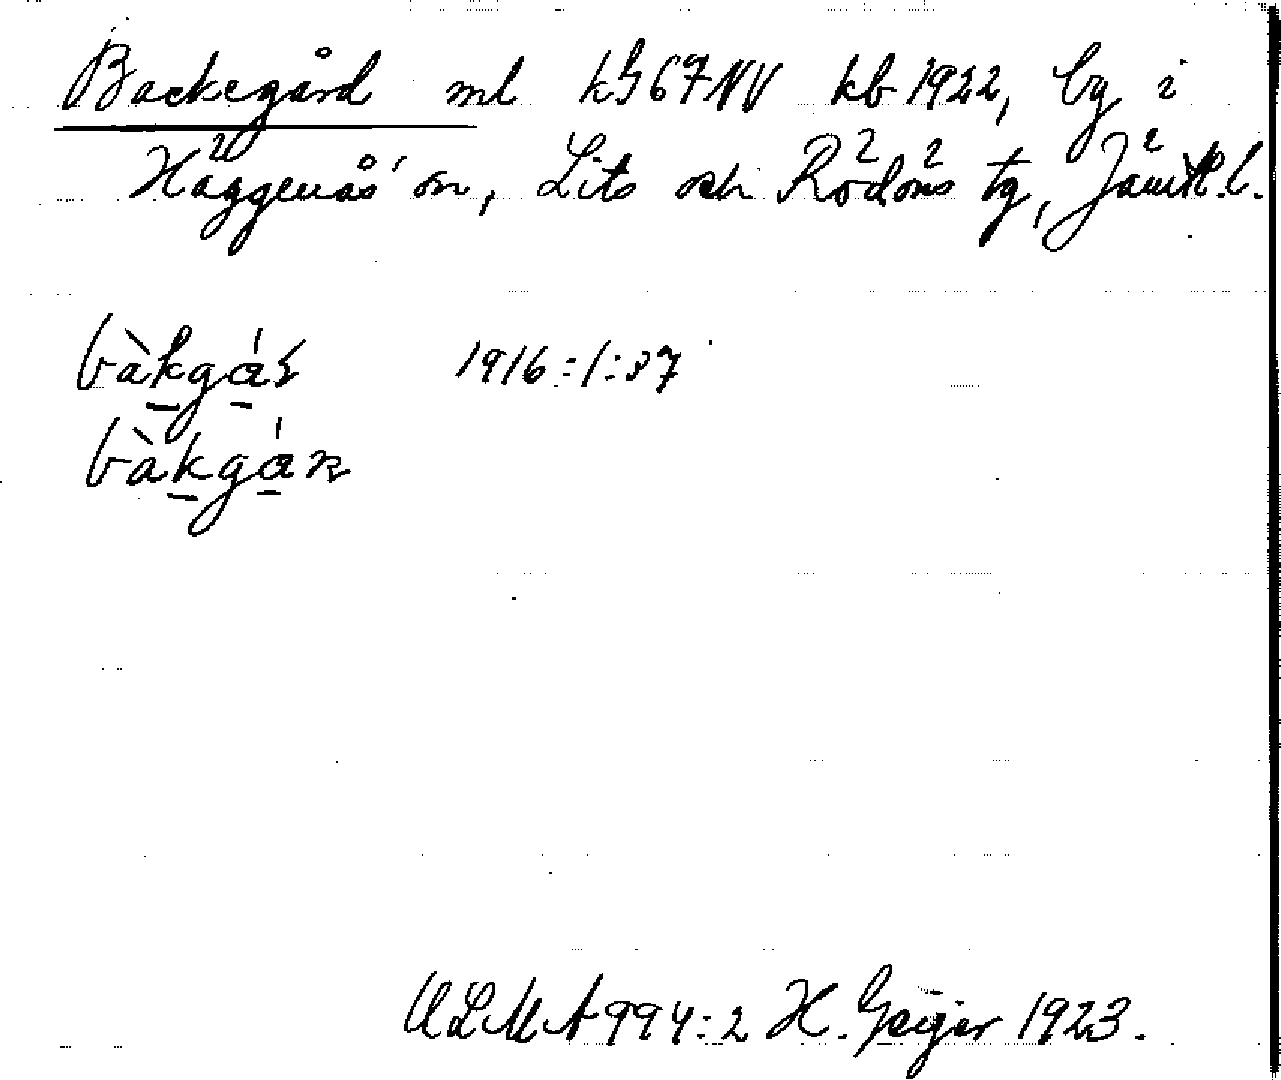 Backegård ml kG67NV kb 1922, by i
Häggenås' sn, Lits och Rödöns tg, Jämtl. l.
bàkgás 1916:1:37
bàkgán
ULMA 994:2 H. Geijer 1923.